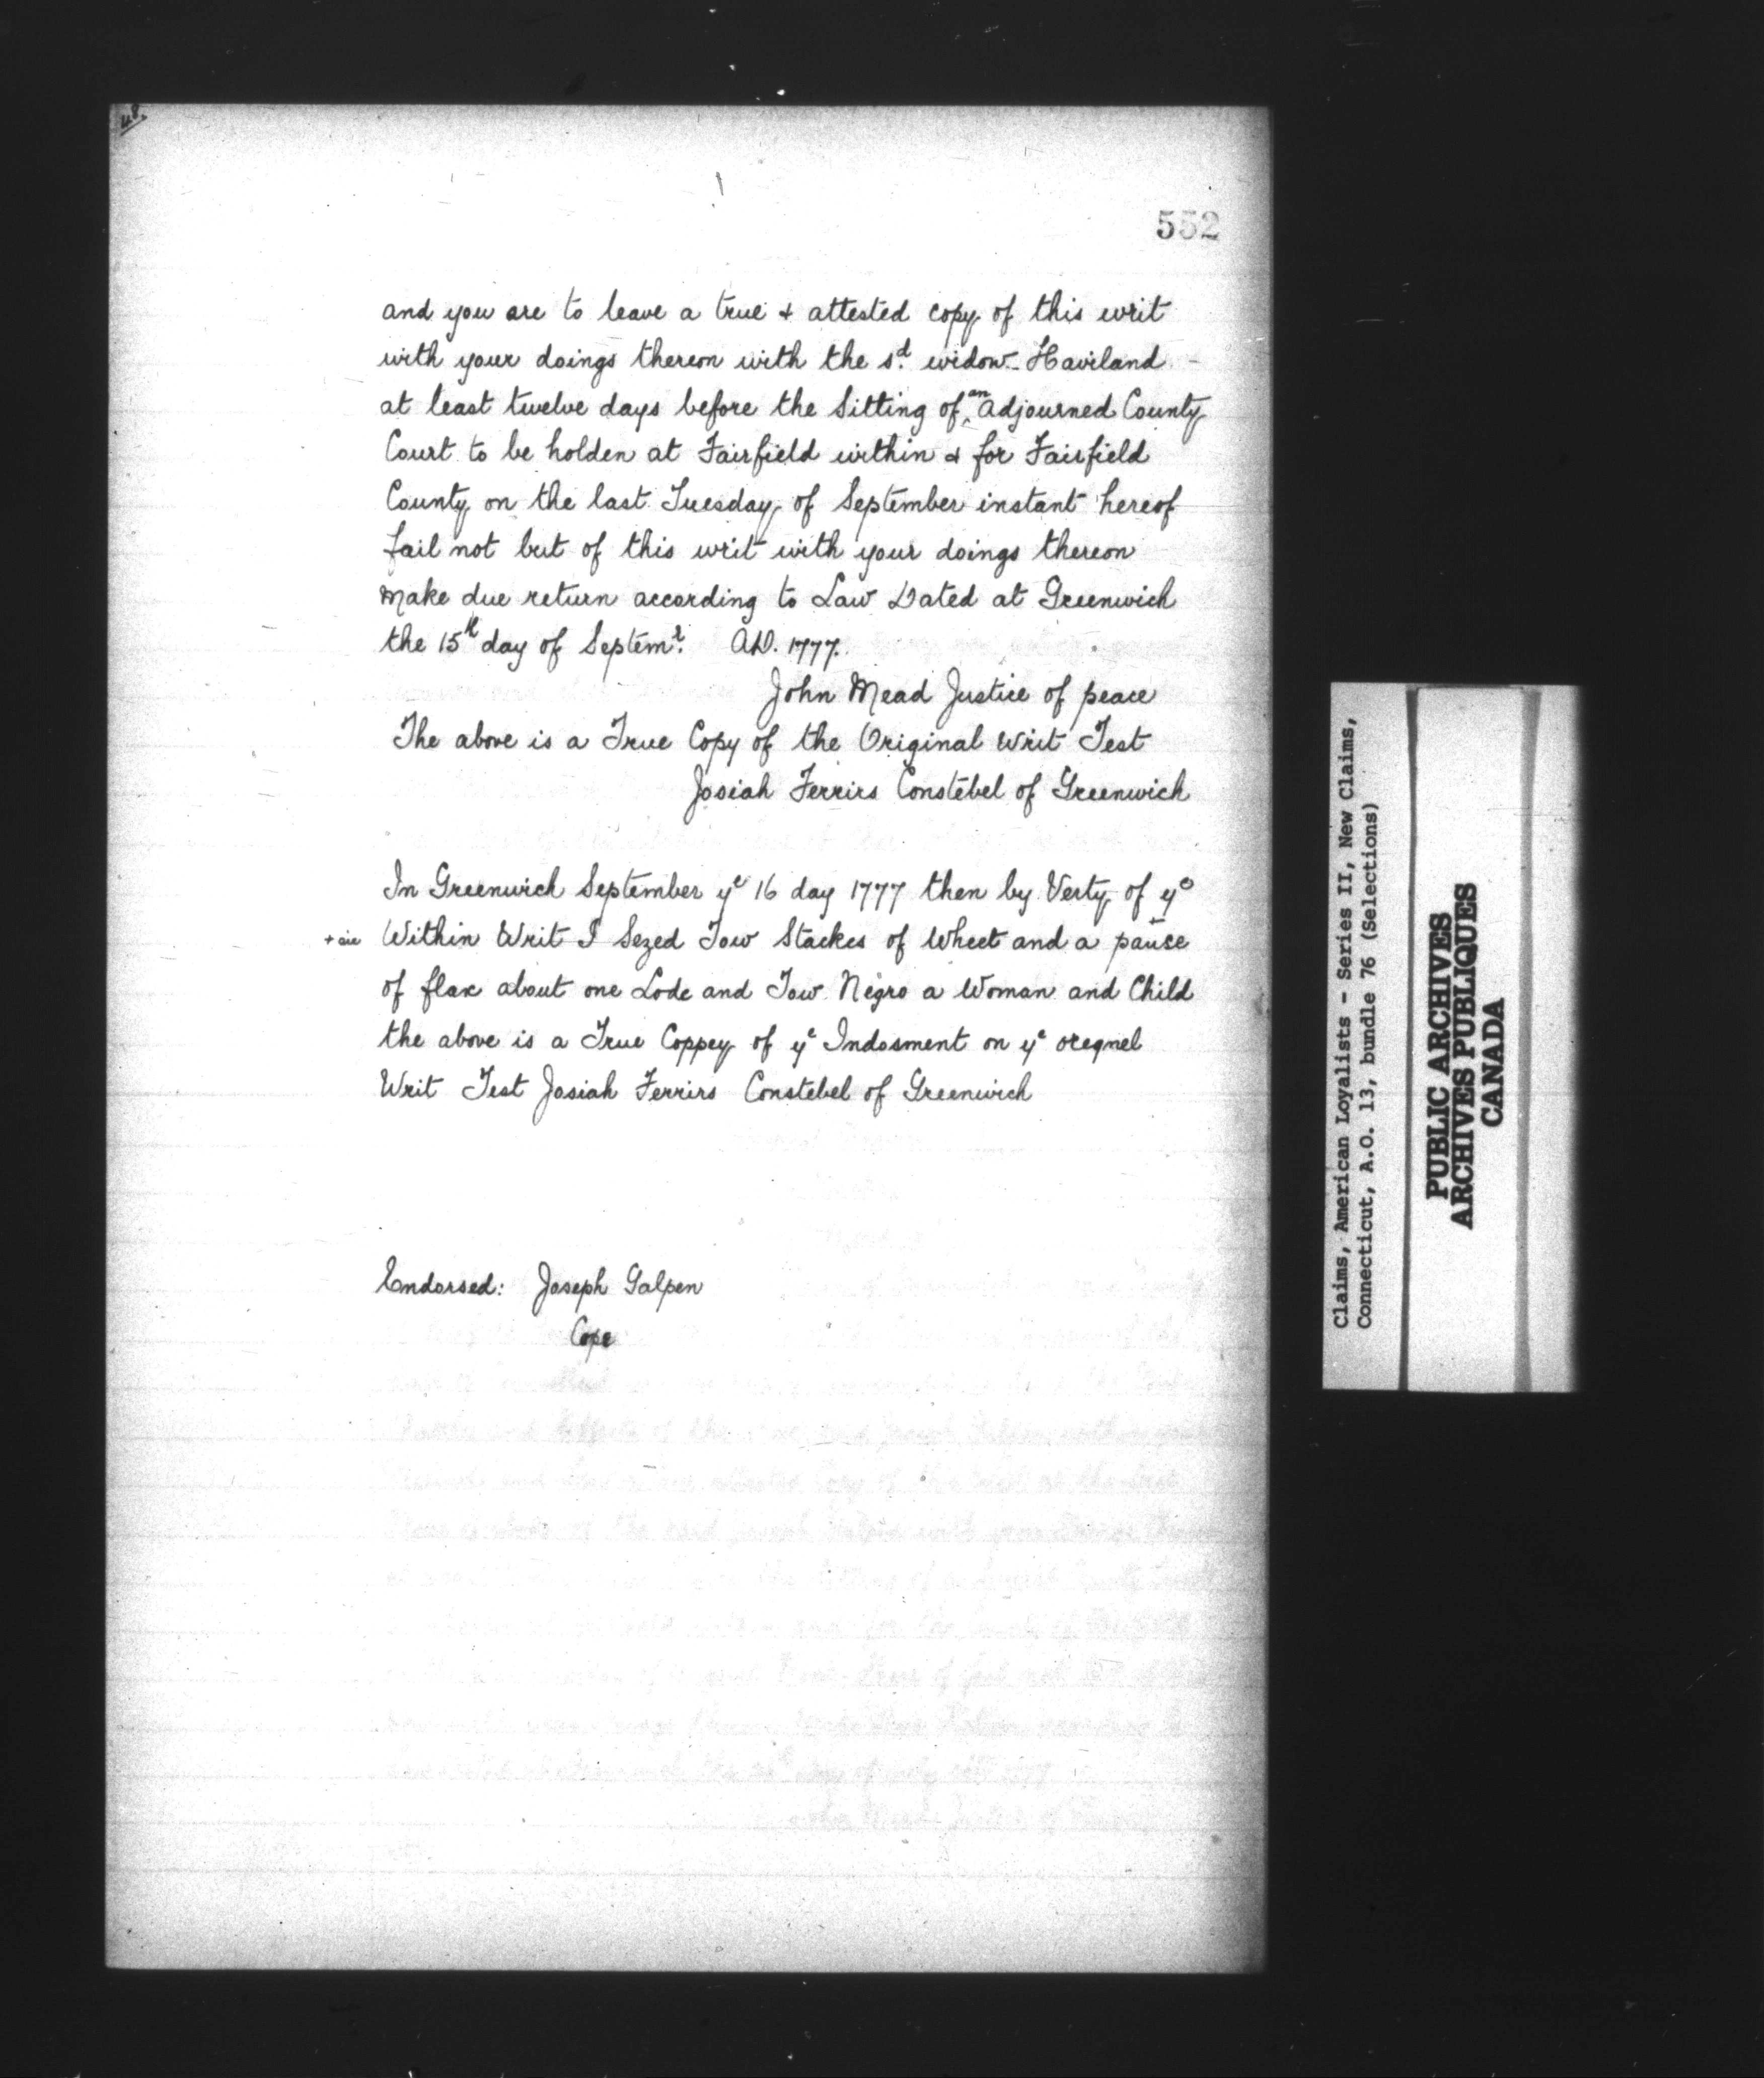 48.
552
and you are to leave a true & attested copy of this writ
with your doings thereon with the sd. widow Haviland
at least twelve days before the Sitting of an Adjourned County
Court to be holden at Fairfield within & for Fairfield
County on the last Tuesday of September instant hereof
fail not but of this writ with your doings thereon
make due return according to Law Dated at Greenwich
the 15th day of Septemr. AD. 1777.
John Mead Justice of peace
The above is a True Copy of the Original Writ Test
Josiah Ferrirs Constebel of Greenwich
In Greenwich September ye 16 day 1777 then by Verty of ye
+ sic Within Writ I Sezed Tow Stackes of Wheet and a pause
of flax about one Lode and Tow Negro a Woman and Child
the above is a True Coppey of ye Indosment on ye oregnel
Writ Test Josiah Ferrirs Constebel of Greenwich
Endorsed: Joseph Galpen
Cope
Claims, American Loyalists - Series II, New Claims,
Connecticut, A.O. 13, bundle 76 (Selections)
PUBLIC ARCHIVES
ARCHIVES PUBLIQUES
CANADA